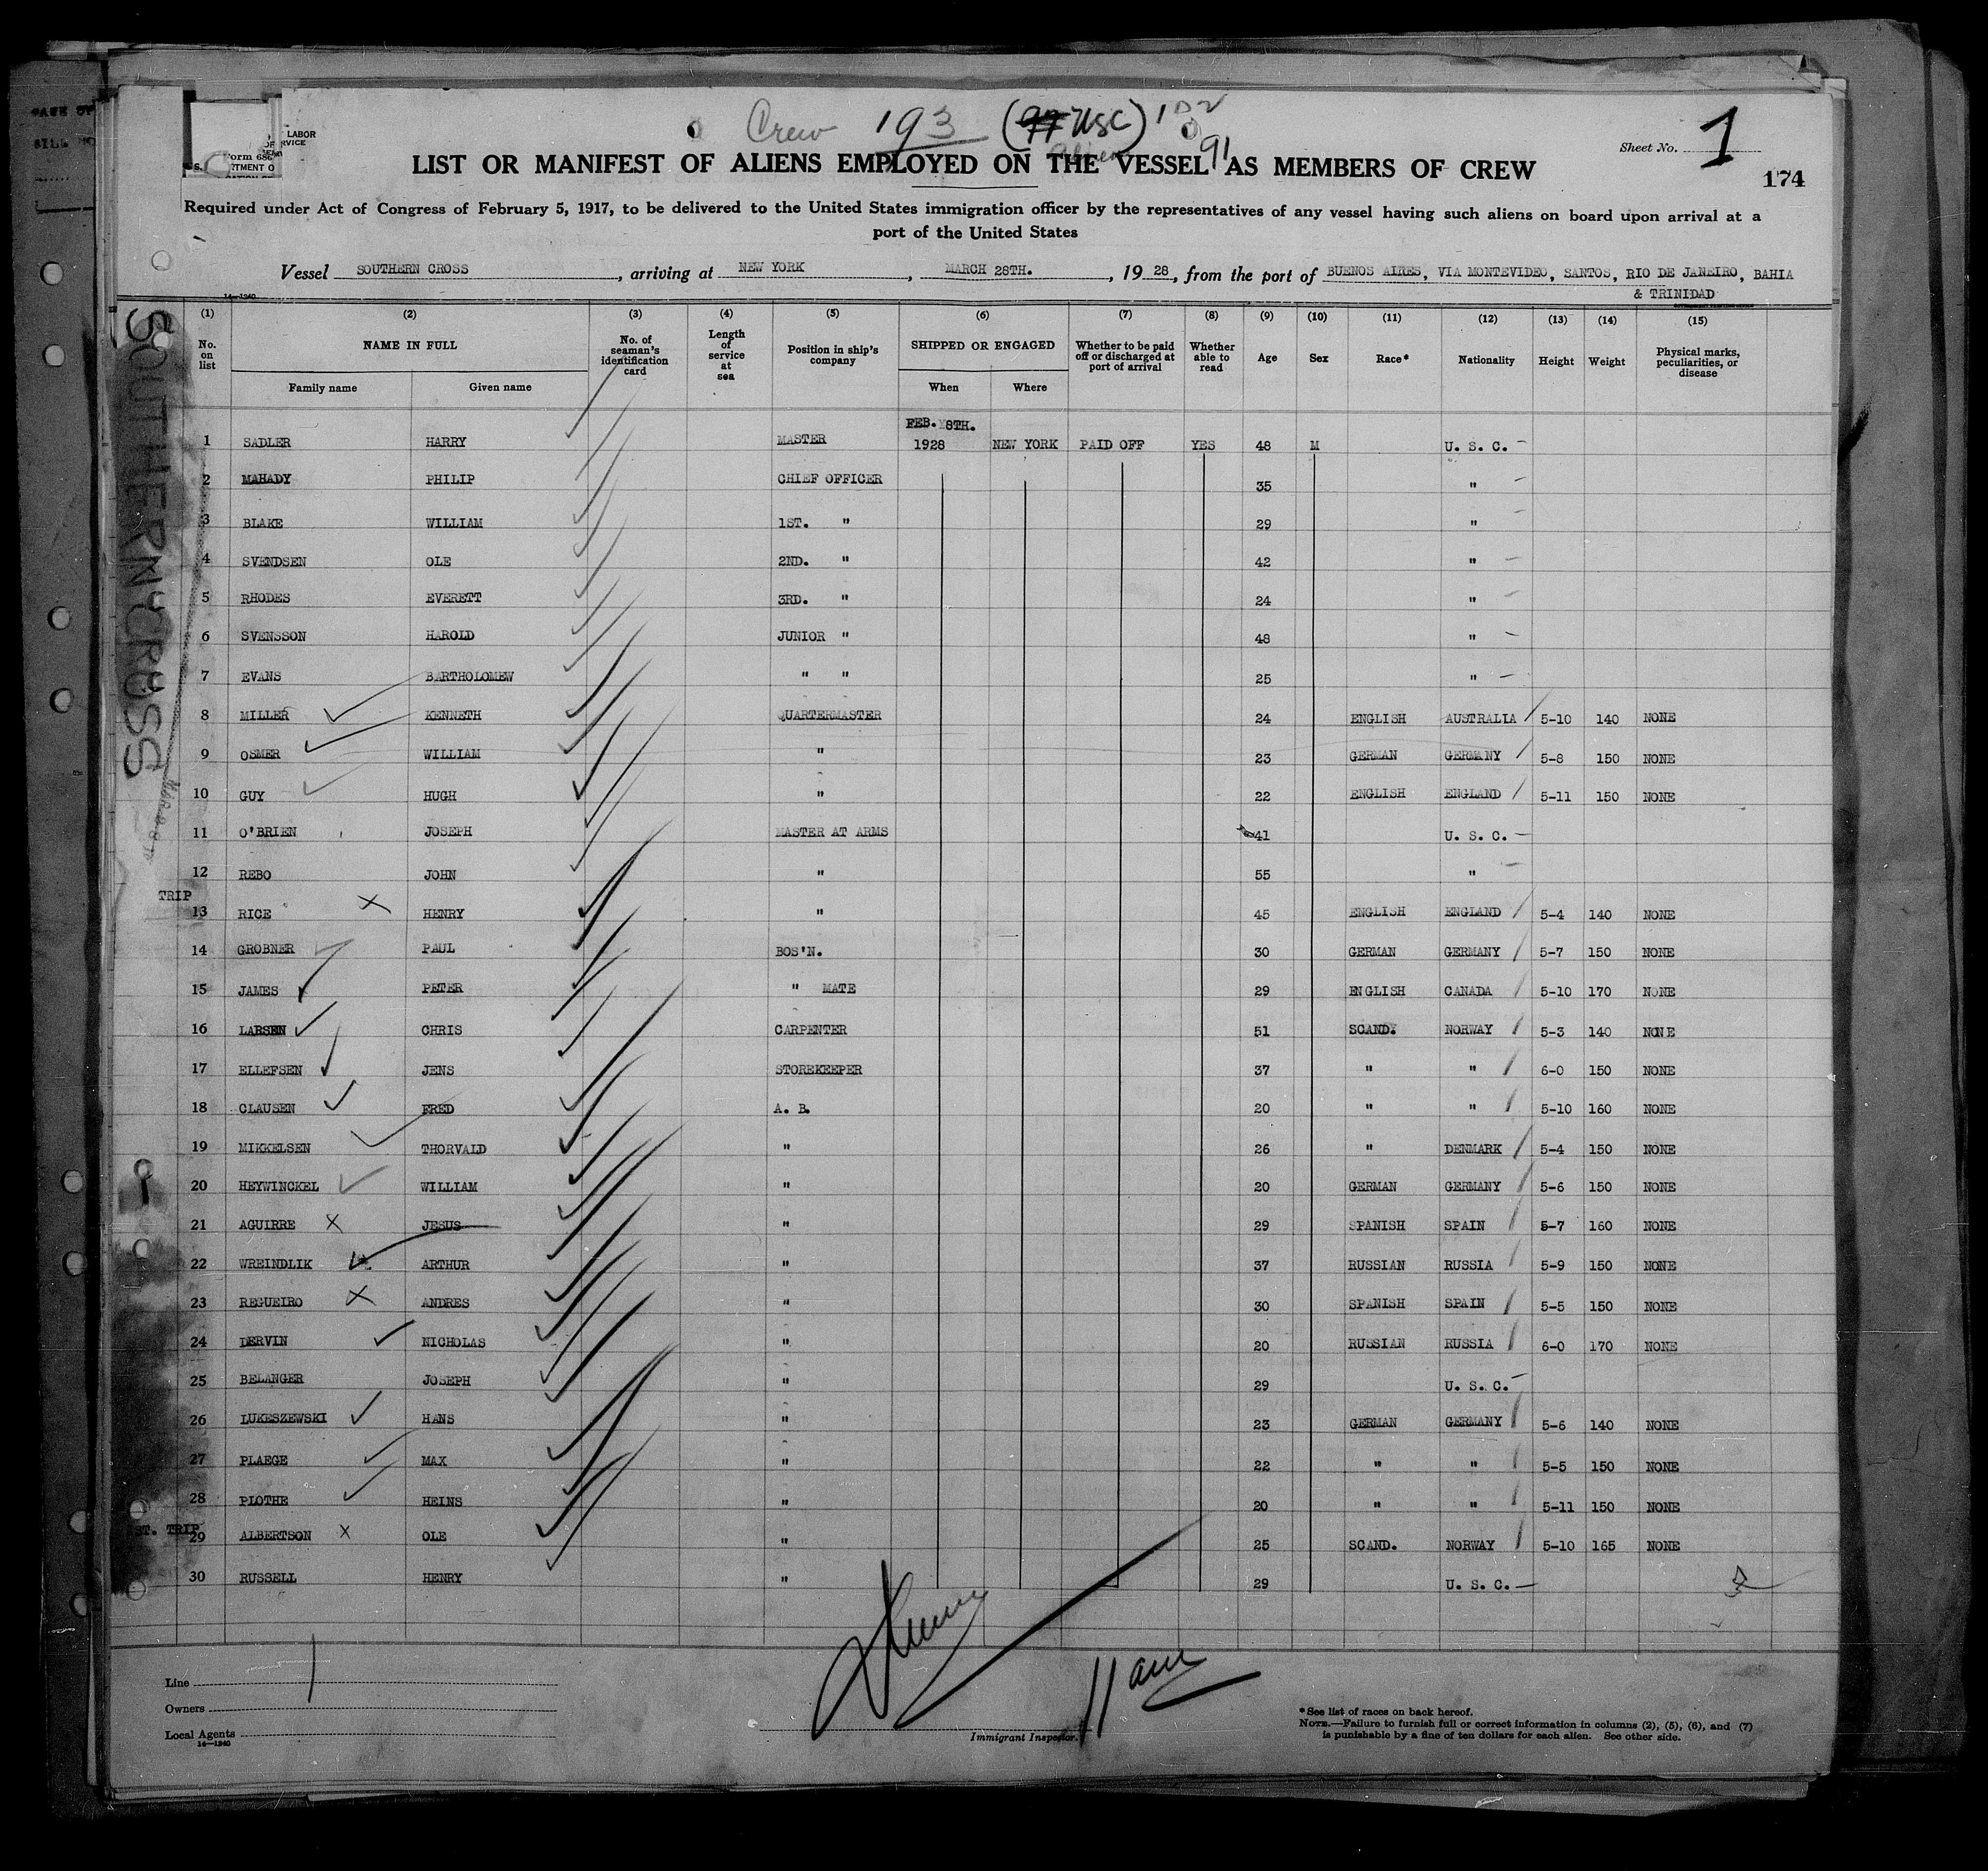 Crew 193 (97 USC) 102
Alien 91
Sheet No. 1
LABOR
Form 686
LIST OR MANIFEST OF ALIENS EMPLOYED ON THE VESSEL AS MEMBERS OF CREW
174
Required under Act of Congress of February 5, 1917, to be delivered to the United States immigration officer by the representatives of any vessel having such aliens on board upon arrival at a
port of the United States
Vessel SOUTHERN CROSS, arriving at NEW YORK, MARCH 28TH., 1928, from the port of BUENOS AIRES, VIA MONTEVIDEO, SANTOS, RIO DE JANEIRO, BAHIA
& TRINIDAD
14—1240
SOUTHERN CROSS
(1) (2) (3) (4) (5) (6) (7) (8) (9) (10) (11) (12) (13) (14) (15)
No. on list NAME IN FULL No. of seaman's identification card Length of service at sea Position in ship's company SHIPPED OR ENGAGED Whether to be paid off or discharged at port of arrival Whether able to read Age Sex Race* Nationality Height Weight Physical marks, peculiarities, or disease
Family name Given name When Where
FEB. 8TH.
1 SADLER HARRY MASTER 1928 NEW YORK PAID OFF YES 48 M U. S. C.
2 MAHADY PHILIP CHIEF OFFICER 35 "
3 BLAKE WILLIAM 1ST. " 29 "
4 SVENDSEN OLE 2ND. " 42 "
5 RHODES EVERETT 3RD. " 24 "
6 SVENSSON HAROLD JUNIOR " 48 "
7 EVANS BARTHOLOMEW " " 25 "
8 MILLER KENNETH QUARTERMASTER 24 ENGLISH AUSTRALIA 5-10 140 NONE
9 OSMER WILLIAM " 23 GERMAN GERMANY 5-8 150 NONE
10 GUY HUGH " 22 ENGLISH ENGLAND 5-11 150 NONE
11 O'BRIEN JOSEPH MASTER AT ARMS 41 U. S. C.
12 REBO JOHN " 55 "
TRIP
13 RICE HENRY " 45 ENGLISH ENGLAND 5-4 140 NONE
14 GROBNER PAUL BOS'N. 30 GERMAN GERMANY 5-7 150 NONE
15 JAMES PETER " MATE 29 ENGLISH CANADA 5-10 170 NONE
16 LARSEN CHRIS CARPENTER 51 SCAND. NORWAY 5-3 140 NONE
17 ELLEFSEN JENS STOREKEEPER 37 " " 6-0 150 NONE
18 CLAUSEN FRED A. B. 20 " " 5-10 160 NONE
19 MIKKELSEN THORVALD " 26 " DENMARK 5-4 150 NONE
20 HEYWINCKEL WILLIAM " 20 GERMAN GERMANY 5-6 150 NONE
21 AGUIRRE JESUS " 29 SPANISH SPAIN 5-7 160 NONE
22 WREINDLIK ARTHUR " 37 RUSSIAN RUSSIA 5-9 150 NONE
23 REGUEIRO ANDRES " 30 SPANISH SPAIN 5-5 150 NONE
24 DERVIN NICHOLAS " 20 RUSSIAN RUSSIA 6-0 170 NONE
25 BELANGER JOSEPH " 29 U. S. C.
26 LUKESZEWSKI HANS " 23 GERMAN GERMANY 5-6 140 NONE
27 PLAEGE MAX " 22 " " 5-5 150 NONE
28 PLOTHE HEINS " 20 " " 5-11 150 NONE
ST. TRIP
29 ALBERTSON OLE " 25 SCAND. NORWAY 5-10 165 NONE
30 RUSSELL HENRY " 29 U. S. C.
11 am
Line
Owners
Local Agents
14—1240
Immigrant Inspector.
*See list of races on back hereof.
NOTE.—Failure to furnish full or correct information in columns (2), (5), (6), and (7)
is punishable by a fine of ten dollars for each alien. See other side.